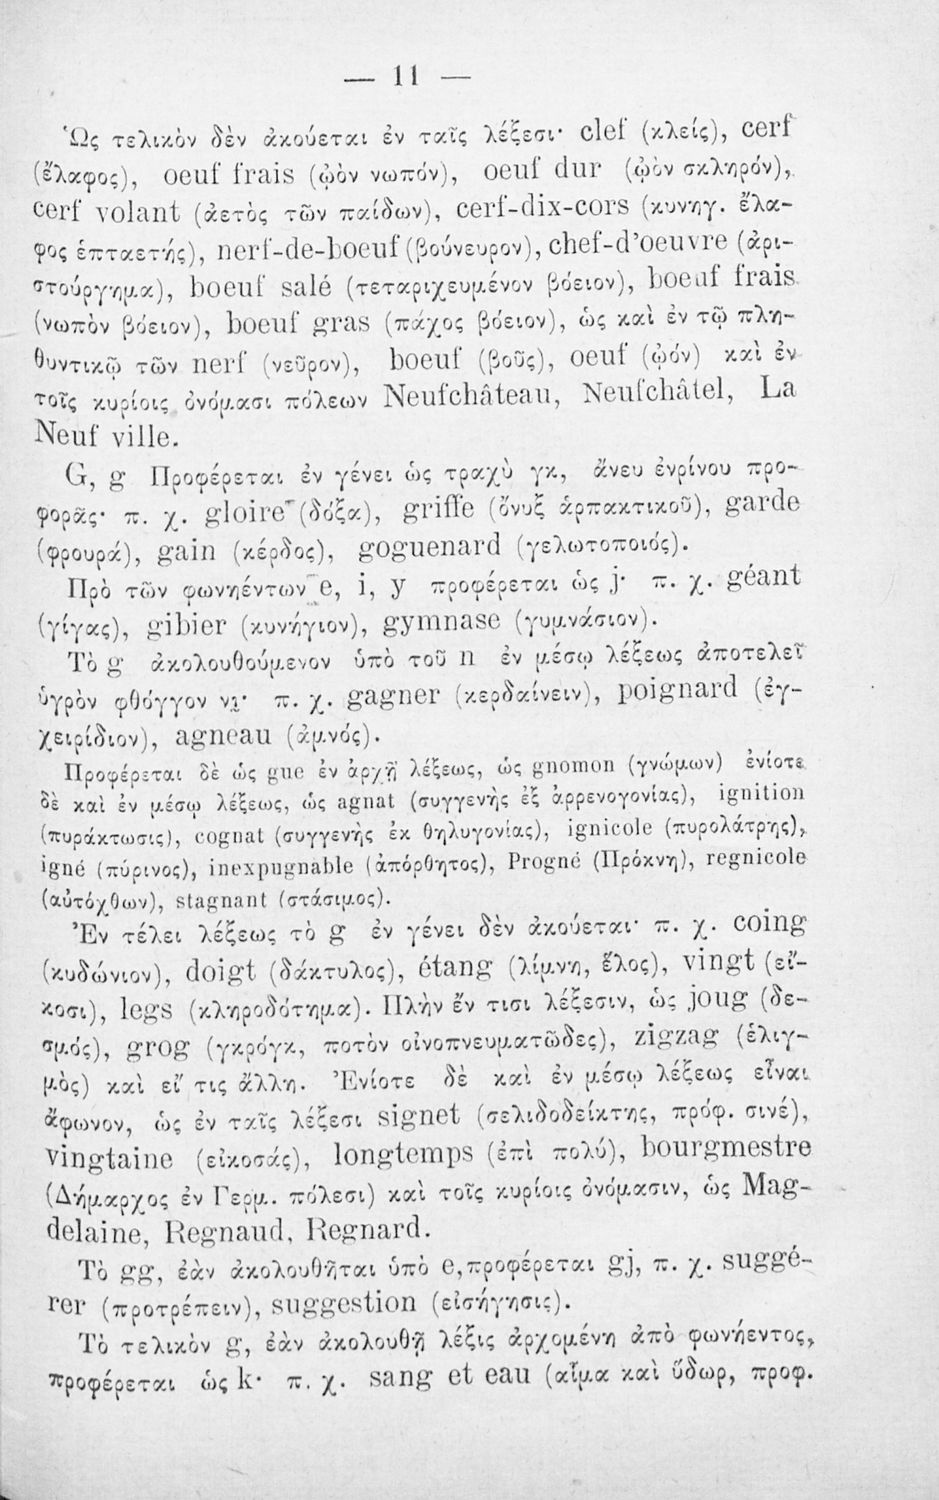 — 11 —
Ὡς τελικὸν δὲν ἀκούεται ἐν ταῖς λέξεσι· clef (κλείς), cerf
(ἔλαφος), oeuf frais (ᾠὸν νωπόν), oeuf dur (ᾠὸν σκληρόν),
cerf volant (ἀετὸς τῶν παίδων), cerf-dix-cors (κυνηγ. ἔλα-
φος ἑπταετής), nerf-de-boeuf (βούνευρον), chef-d'oeuvre (ἀρι-
στούργημα), boeuf salé (τεταριχευμένον βόειον), boeuf frais
(νωπὸν βόειον), boeuf gras (πάχος βόειον), ὡς καὶ ἐν τῷ πλη-
θυντικῷ τῶν nerf (νεῦρον), boeuf (βοῦς), oeuf (ᾠόν) καὶ ἐν
τοῖς κυρίοις ὀνόμασι πόλεων Neufchâteau, Neufchâtel, La
Neuf ville.
G, g Προφέρεται ἐν γένει ὡς τραχὺ γκ, ἄνευ ἐνρίνου προ-
φορᾶς· π. χ. gloire (δόξα), griffe (ὄνυξ ἁρπακτικοῦ), garde
(φρουρά), gain (κέρδος), goguenard (γελωτοποιός).
Πρὸ τῶν φωνηέντων e, i, y προφέρεται ὡς j· π. χ. géant
(γίγας), gibier (κυνήγιον), gymnase (γυμνάσιον).
Τὸ g ἀκολουθούμενον ὑπὸ τοῦ n ἐν μέσῳ λέξεως ἀποτελεῖ
ὑγρὸν φθόγγον νι̮· π. χ. gagner (κερδαίνειν), poignard (ἐγ-
χειρίδιον), agneau (ἀμνός).
Προφέρεται δὲ ὡς gue ἐν ἀρχῇ λέξεως, ὡς gnomon (γνώμων) ἐνίοτε
δὲ καὶ ἐν μέσῳ λέξεως, ὡς agnat (συγγενὴς ἐξ ἀρρενογονίας), ignition
(πυράκτωσις), cognat (συγγενὴς ἐκ θηλυγονίας), ignicole (πυρολάτρης),
igné (πύρινος), inexpugnable (ἀπόρθητος), Progné (Πρόκνη), regnicole
(αὐτόχθων), stagnant (στάσιμος).
Ἐν τέλει λέξεως τὸ g ἐν γένει δὲν ἀκούεται· π. χ. coing
(κυδώνιον), doigt (δάκτυλος), étang (λίμνη, ἕλος), vingt (εἴ-
κοσι), legs (κληροδότημα). Πλὴν ἔν τισι λέξεσιν, ὡς joug (δε-
σμός), grog (γκρόγκ, ποτὸν οἰνοπνευματῶδες), zigzag (ἑλιγ-
μὸς) καὶ εἴ τις ἄλλη. Ἐνίοτε δὲ καὶ ἐν μέσῳ λέξεως εἶναι
ἄφωνον, ὡς ἐν ταῖς λέξεσι signet (σελιδοδείκτης, πρόφ. σινέ),
vingtaine (εἰκοσάς), longtemps (ἐπὶ πολύ), bourgmestre
(Δήμαρχος ἐν Γερμ. πόλεσι) καὶ τοῖς κυρίοις ὀνόμασιν, ὡς Mag-
delaine, Regnaud, Regnard.
Τὸ gg, ἐὰν ἀκολουθῆται ὑπὸ e, προφέρεται gj, π. χ. suggé-
rer (προτρέπειν), suggestion (εἰσήγησις).
Τὸ τελικὸν g, ἐὰν ἀκολουθῇ λέξις ἀρχομένη ἀπὸ φωνήεντος,
προφέρεται ὡς k· π. χ. sang et eau (αἷμα καὶ ὕδωρ, προφ.